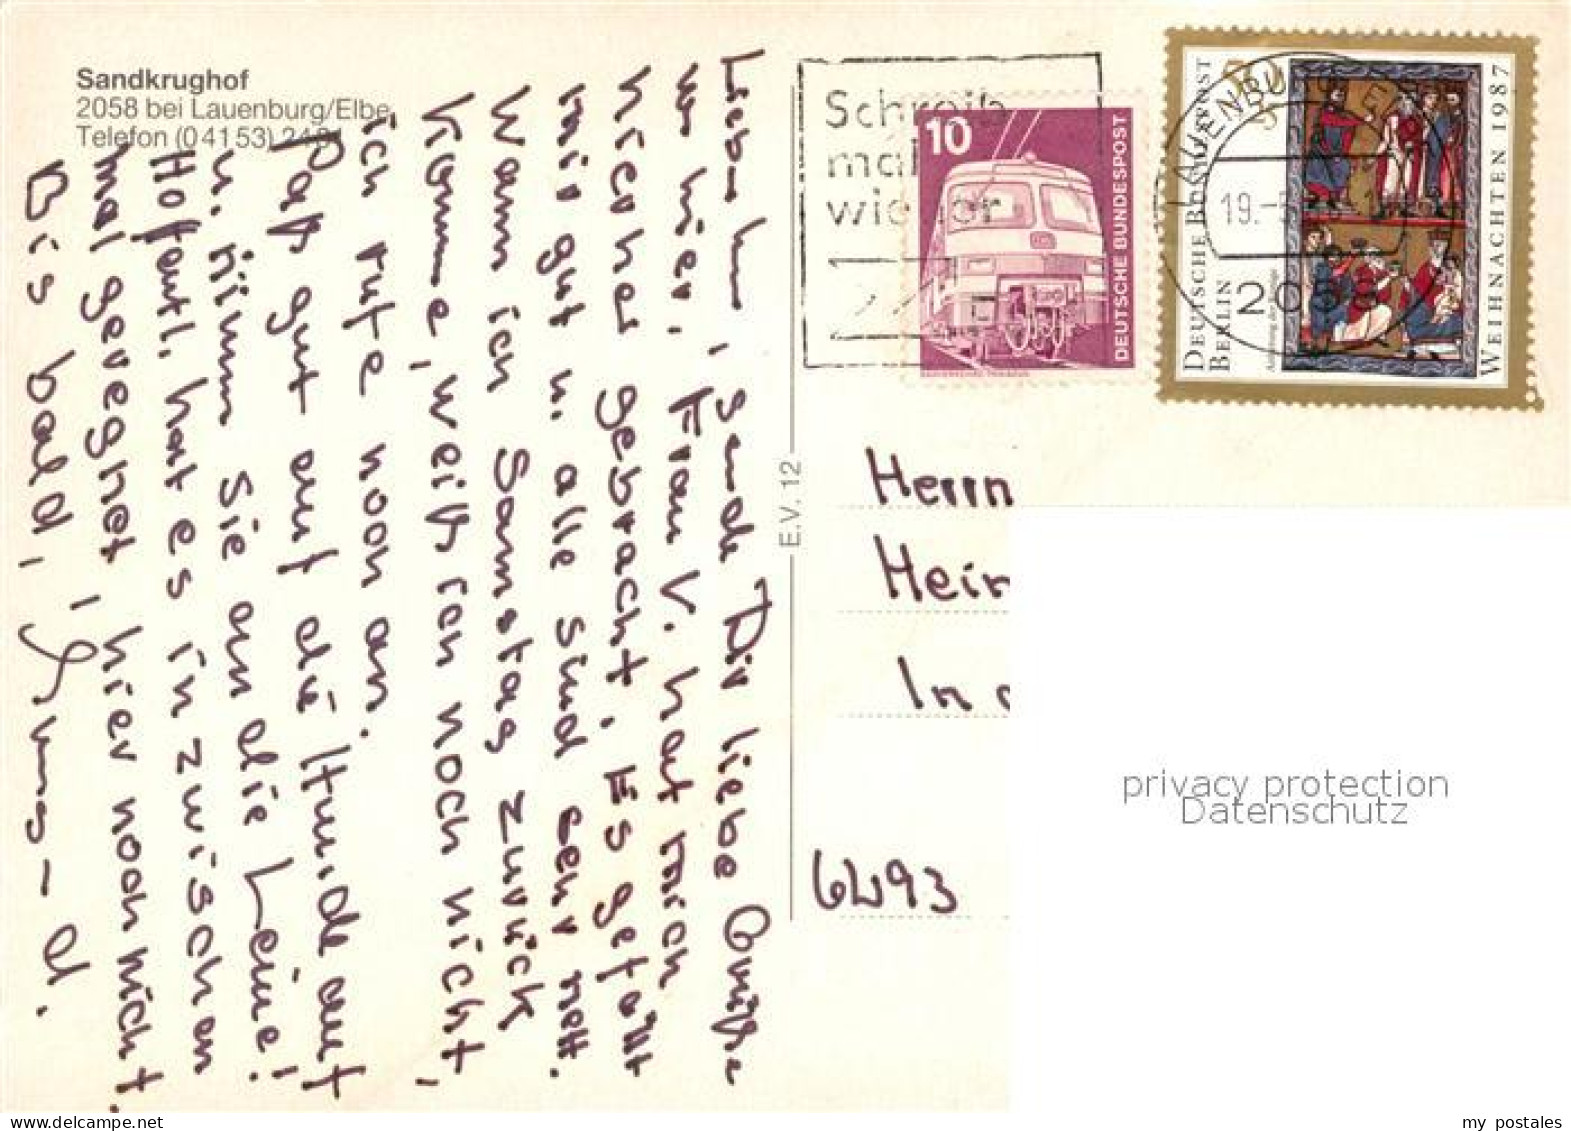 Sandkrughof
2058 bei Lauenburg/Elbe
Telefon (04153) 24
sende Dir liebe Grüße
hier. Frau V. hat mich
hierher gebracht. Es gefällt
mir gut u. alle sind sehr nett.
Wann ich Samstag zurück
komme, weiß ich noch nicht,
ich rufe noch an.
Paß gut auf die Hunde auf
u. nimm sie an die Leine!
Hoffentl. hat es inzwischen
mal geregnet, hier noch nicht.
Bis bald,
E.V. 12
Schreib
mal
wieder
10
DEUTSCHE BUNDESPOST
LAUENBURG, ELBE
19.
2058
DEUTSCHE BUNDESPOST
BERLIN
Anbetung der Könige
WEIHNACHTEN 1987
Herrn
Hein
In d
6493
privacy protection
Datenschutz
my postales